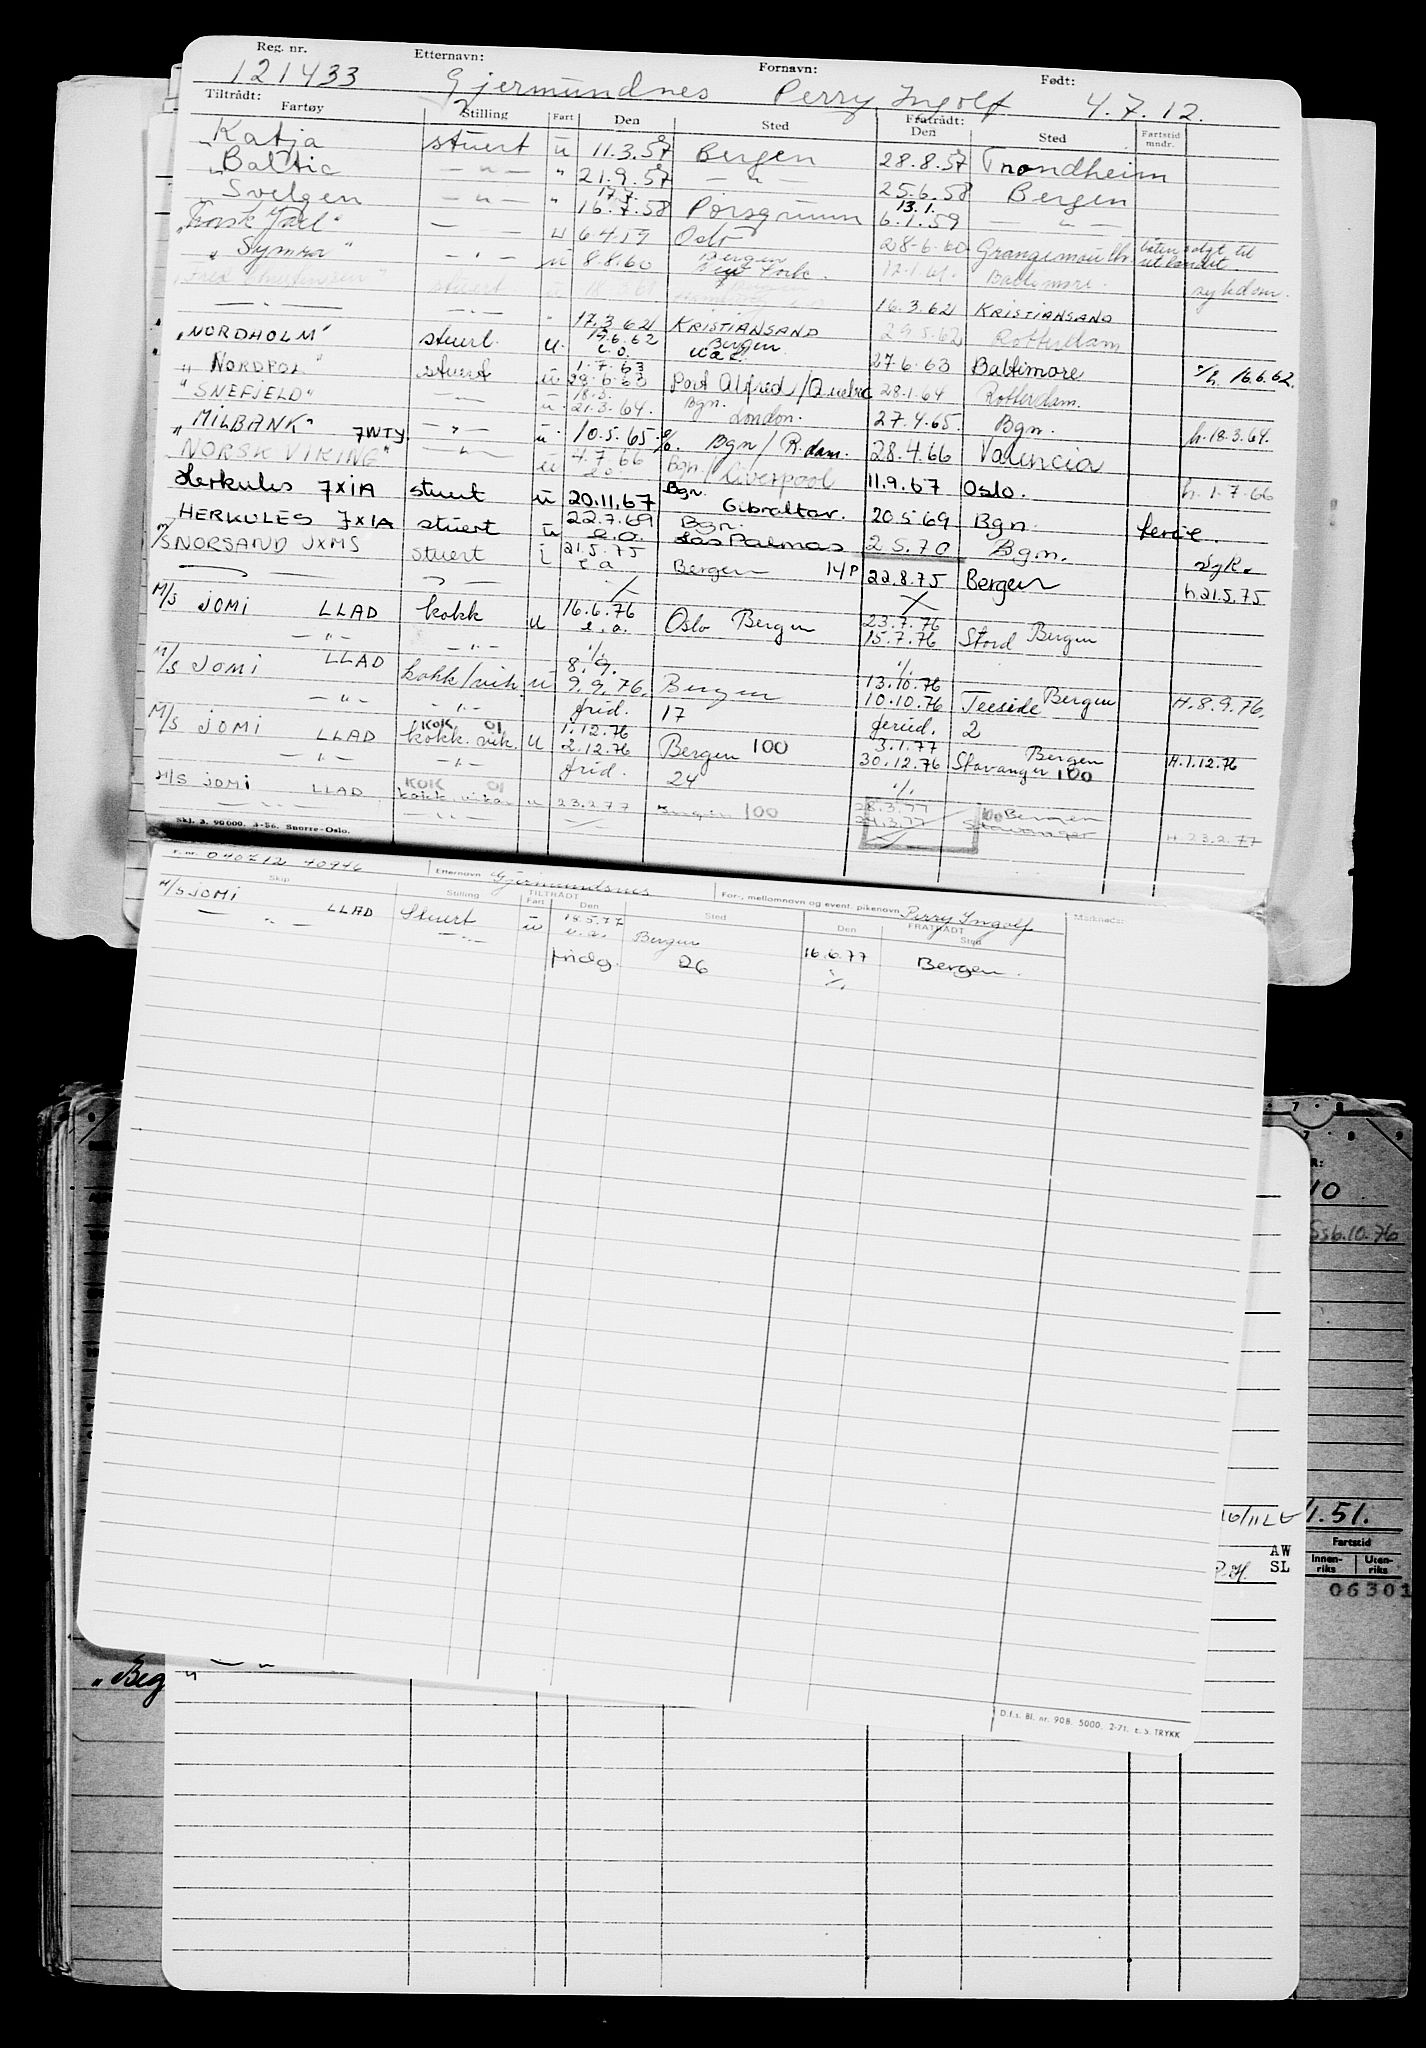 Reg. nr. Etternavn: Fornavn: Født:
121433 Gjermundnes Perry Ingolf 4.7.12.
Tiltrådt: Fratrådt:
Fartøy Stilling Fart Den Sted Den Sted Fartstid mndr.
Katja stuert u 11.3.57 Bergen 28.8.57 Trondheim
"Baltic — " — " 21.9.57 — " — 25.6.58 Bergen
Svelgen — " — " 17.7. 16.7.58 Porsgrunn 13.1. 6.1.59 — " —
"Norsk Jarl" — " — u 6.4.59 Oslo 28-6-60 Grangemouth båten solgt til utlandet
"Symra" — " — u 8.8.60 Bergen New York. 12.1.61. Baltimore. sykdom.
stuert u 18.3.61 Bergen 16.3.62 KRISTIANSAND
— " — — " — " 17.3.62 KRISTIANSAND 29.5.62 Rotterdam
"NORDHOLM" stuert. u. 19.6.62 e.o. Bergen 27.6.63 Baltimore h. 16.6.62.
"NORDPOL" stuert u 1.7.63 29.6.63 Port Alfred/Quebec 28.1.64 Rotterdam.
"SNEFJELD" — " — u. 18.3. 21.3.64. Bgn. London. 27.4.65. Bgn. h.18.3.64.
"MILBANK" 7WTY. — " — u. 10.5.65. e/o. Bgn/R.dam. 28.4.66 Valencia
"NORSK VIKING" — " — u 4.7.66 e.o. Bgn./Liverpool 11.9.67 Oslo. h. 1.7.66
Herkules 7XIA stuert u 20.11.67 Bgn. Gibraltar. 20.5.69 Bgn. ferie.
HERKULES 7XIA stuert u 22.7.69 e.o. Bgn. Las Palmas 2.5.70 Bgn. syk.
M/S NORSAND JXMS stuert i 21.5.75 e.o. Bergen 14P 22.8.75 Bergen h.21.5.75
M/S JOMI LLAD kokk u 16.6.76 e.o. Oslo Bergen 23.7.76 15.7.76 Stord Bergen
— " — — " — ./. ./.
M/S JOMI LLAD kokk/vik. u 8.9. 9.9.76. Bergen 13.10.76 10.10.76 Teeside Bergen H.8.9.76.
— " — — " — frid. 17 feried. 2
M/S JOMI LLAD KOK 01 kokk.vik. u 1.12.76 2.12.76 Bergen 100 3.1.77 30.12.76 Stavanger Bergen 100 H.1.12.76
— " — — " — frid. 24 ./.
M/S JOMI LLAD KOK 01 kokk.vikar u 23.2.77 Bergen 100 28.3.77 24.3.77 Bergen Stavanger H.23.2.77
— " — — " — ./.
Skj. 3. 90600. 3-56. Snorre-Oslo.
F. nr. 040712 40946 Etternavn Gjermundsnes For-, mellomnavn og event. pikenavn Perry Ingolf
TILTRÅDT FRATRÅDT
Skip Stilling Fart Den Sted Den Sted Merknads:
M/S JOMI LLAD Stuert u 18.5.77 e.o. Bergen 16.6.77 Bergen.
— " — — " — fridg. 26 ./.
D.f.s. Bl. nr. 90B. 5000. 2-71. E.S. TRYKK
R:
10
6.10.76
1.51.
Fartstid
AW
SL
Innenriks Utenriks
06301
"Beg